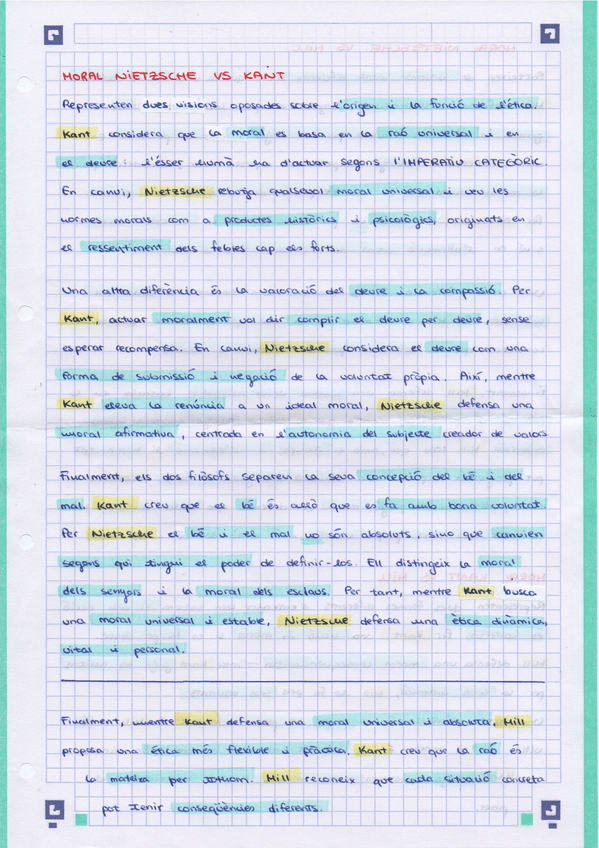 MORAL NIETZSCHE VS KANT
Representen dues visions oposades sobre l'origen i la funció de l'ètica.
Kant considera que la moral es basa en la raó universal i en
el deure: l'ésser humà ha d'actuar segons l'IMPERATIU CATEGÒRIC.
En canvi, Nietzsche rebutja qualsevol moral universal i veu les
normes morals com a productes històrics i psicològics, originats en
el ressentiment dels febles cap els forts.
Una altra diferència és la valoració del deure i la compassió. Per
Kant, actuar moralment vol dir complir el deure per deure, sense
esperar recompensa. En canvi, Nietzsche considera el deure com una
forma de submissió i negació de la voluntat pròpia. Així, mentre
Kant eleva la renúncia a un ideal moral, Nietzsche defensa una
moral afirmativa, centrada en l'autonomia del subjecte creador de valors
Finalment, els dos filòsofs separen la seva concepció del bé i del
mal. Kant creu que el bé és allò que es fa amb bona voluntat.
Per Nietzsche el bé i el mal no són absoluts, sino que canvien
segons qui tingui el poder de definir-los. Ell distingeix la moral
dels senyors i la moral dels esclaus. Per tant, mentre Kant busca
una moral universal i estable, Nietzsche defensa una ètica dinàmica,
vital i personal.
Finalment, mentre Kant defensa una moral universal i absoluta, Mill
proposa una ètica més flexible i pràctica. Kant creu que la raó és
la mateixa per tothom. Mill reconeix que cada situació concreta
pot tenir conseqüències diferents.